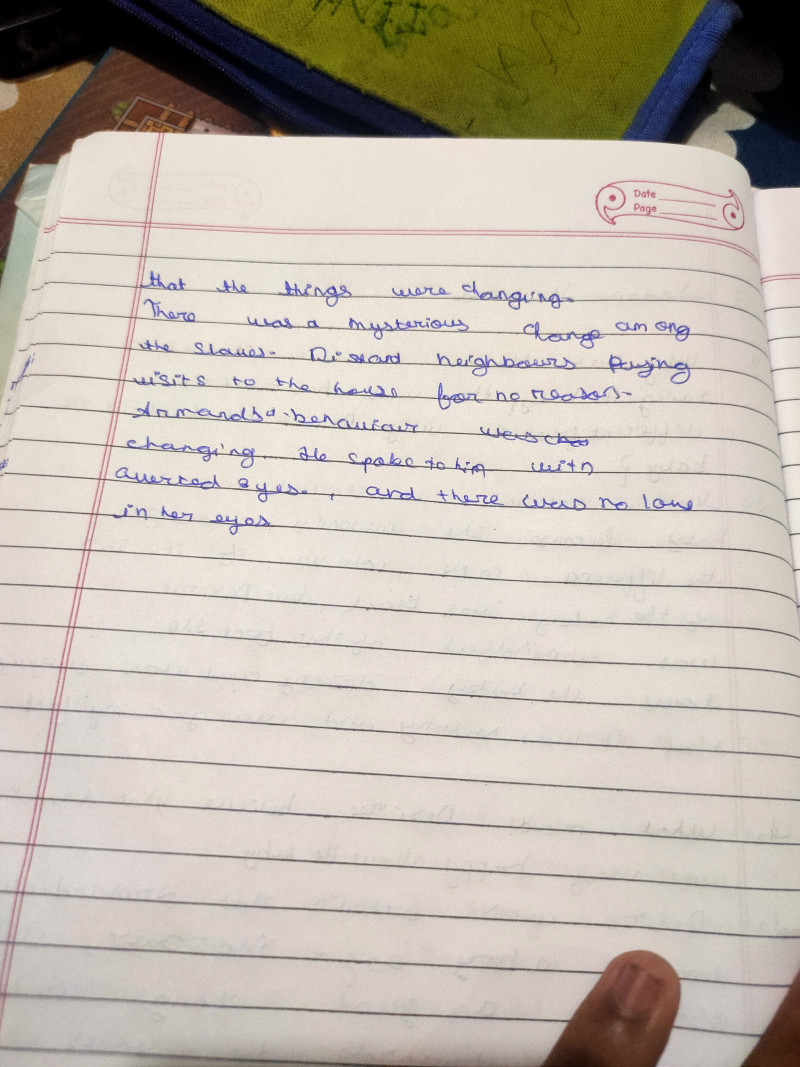 Date
Page
that the things were changing.
There was a mysterious change among
the slaves. Distant neighbours paying
visits to the house for no reason.
Armands behaviour was
changing. He spoke to him with
averted eyes., and there was no love
in her eyes